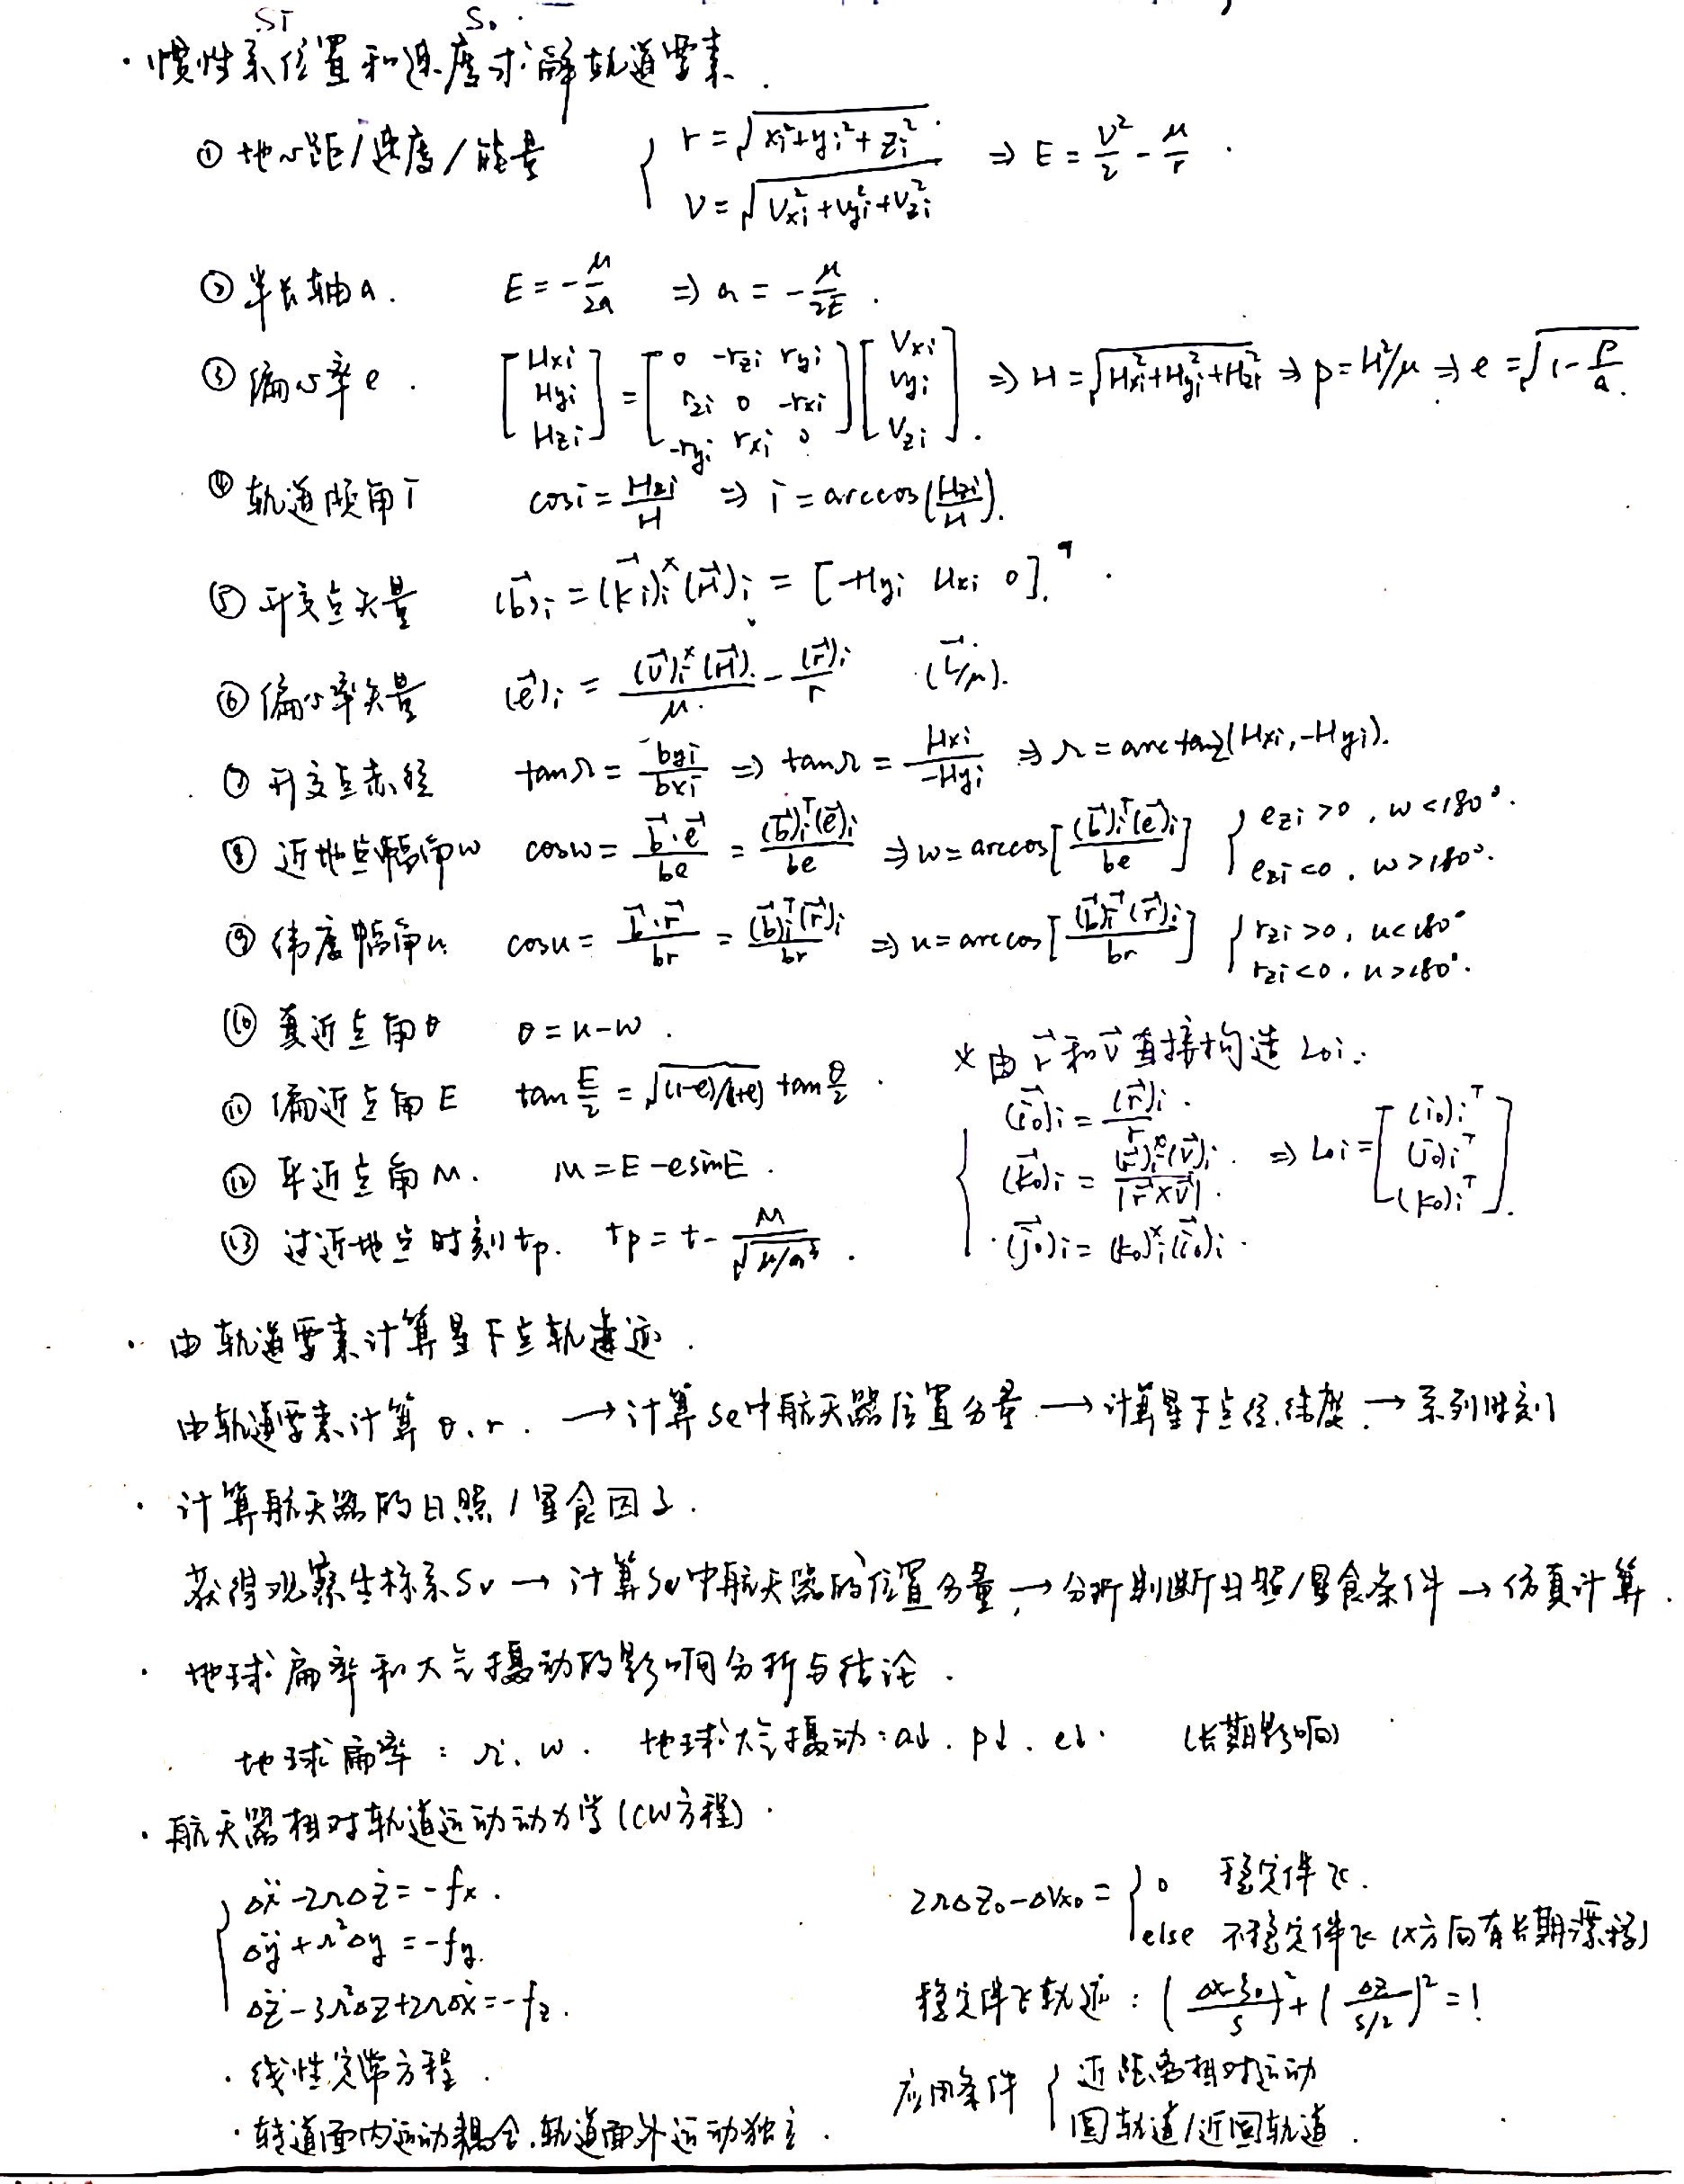 Si So
· 惯性系位置和速度求解轨道要素.
① 地心距/速度/能量 { r=√(xi²+yi²+zi²) V=√(Vxi²+Vyi²+Vzi²) ⇒ E = V²/2 - μ/r .
② 半长轴a. E = -μ/2a ⇒ a = -μ/2E .
③ 偏心率e . [Hxi Hyi Hzi] = [0 -rzi ryi; rzi 0 -rxi; -ryi rxi 0] [Vxi Vyi Vzi]. ⇒ H = √(Hxi²+Hyi²+Hzi²) ⇒ p = H²/μ ⇒ e = √(1 - p/a).
④ 轨道倾角i cosi = Hzi/H ⇒ i = arccos(Hzi/H).
⑤ 升交点矢量 (b⃗)i = (k⃗i)i^×(H⃗)i = [-Hyi Hxi 0]^T.
⑥ 偏心率矢量 (e⃗)i = (v⃗)i^×(H⃗)i/μ - (r⃗)i/r (L⃗/μ).
⑦ 升交点赤经 tanΩ = byi/bxi ⇒ tanΩ = Hxi/-Hyi ⇒ Ω = arctan2(Hxi,-Hyi).
⑧ 近地点幅角w cosw = b⃗·e⃗/be = (b⃗)i^T(e⃗)i/be ⇒ w = arccos[(b⃗)i^T(e⃗)i/be] { ezi>0 , w<180°. ezi<0 , w>180°.
⑨ 纬度幅角u cosu = b⃗·r⃗/br = (b⃗)i^T(r⃗)i/br ⇒ u = arccos[(b⃗)i^T(r⃗)i/br] { rzi>0 , u<180° rzi<0 , u>180°.
⑩ 真近点角θ θ = u-w .
⑪ 偏近点角E tan E/2 = √((1-e)/(1+e)) tan θ/2 .
⑫ 平近点角M. M = E-esinE .
⑬ 过近地点时刻tp. tp = t - M/√(μ/a³) .
* 由r⃗和v⃗直接构造Loi:
{ (i⃗o)i = (r⃗)i/r .
(k⃗o)i = (r⃗)i^×(v⃗)i/|r⃗×v⃗| . ⇒ Loi = [(io)i^T (jo)i^T (ko)i^T].
(j⃗o)i = (ko)i^×(i⃗o)i .
· 由轨道要素计算星下点轨迹 .
由轨道要素计算θ、r . → 计算Se中航天器位置分量 → 计算星下点经、纬度 . → 系列时刻
· 计算航天器的日照/星食因子 .
获得观察坐标系Sv → 计算Sv中航天器的位置分量 , → 分析判断日照/星食条件 → 仿真计算 .
· 地球扁率和大气摄动的影响分析与结论 .
地球扁率 : Ω、w . 地球大气摄动 : a↓ . p↓ . e↓ . (长期影响)
· 航天器相对轨道运动动力学(CW方程) .
{ Δẍ-2nΔż = -fx .
Δÿ+n²Δy = -fy.
Δz̈-3n²Δz+2nΔẋ = -fz .
· 线性定常方程 .
· 轨道面内运动耦合.轨道面外运动独立 .
2nΔz₀-ΔVx₀ = { 0 稳定伴飞 .
else 不稳定伴飞 (x方向有长期漂移)
稳定伴飞轨迹 : ((Δx-ξ₀)/s)² + (Δz/(s/2))² = 1
应用条件 { 近距离相对运动
圆轨道/近圆轨道 .